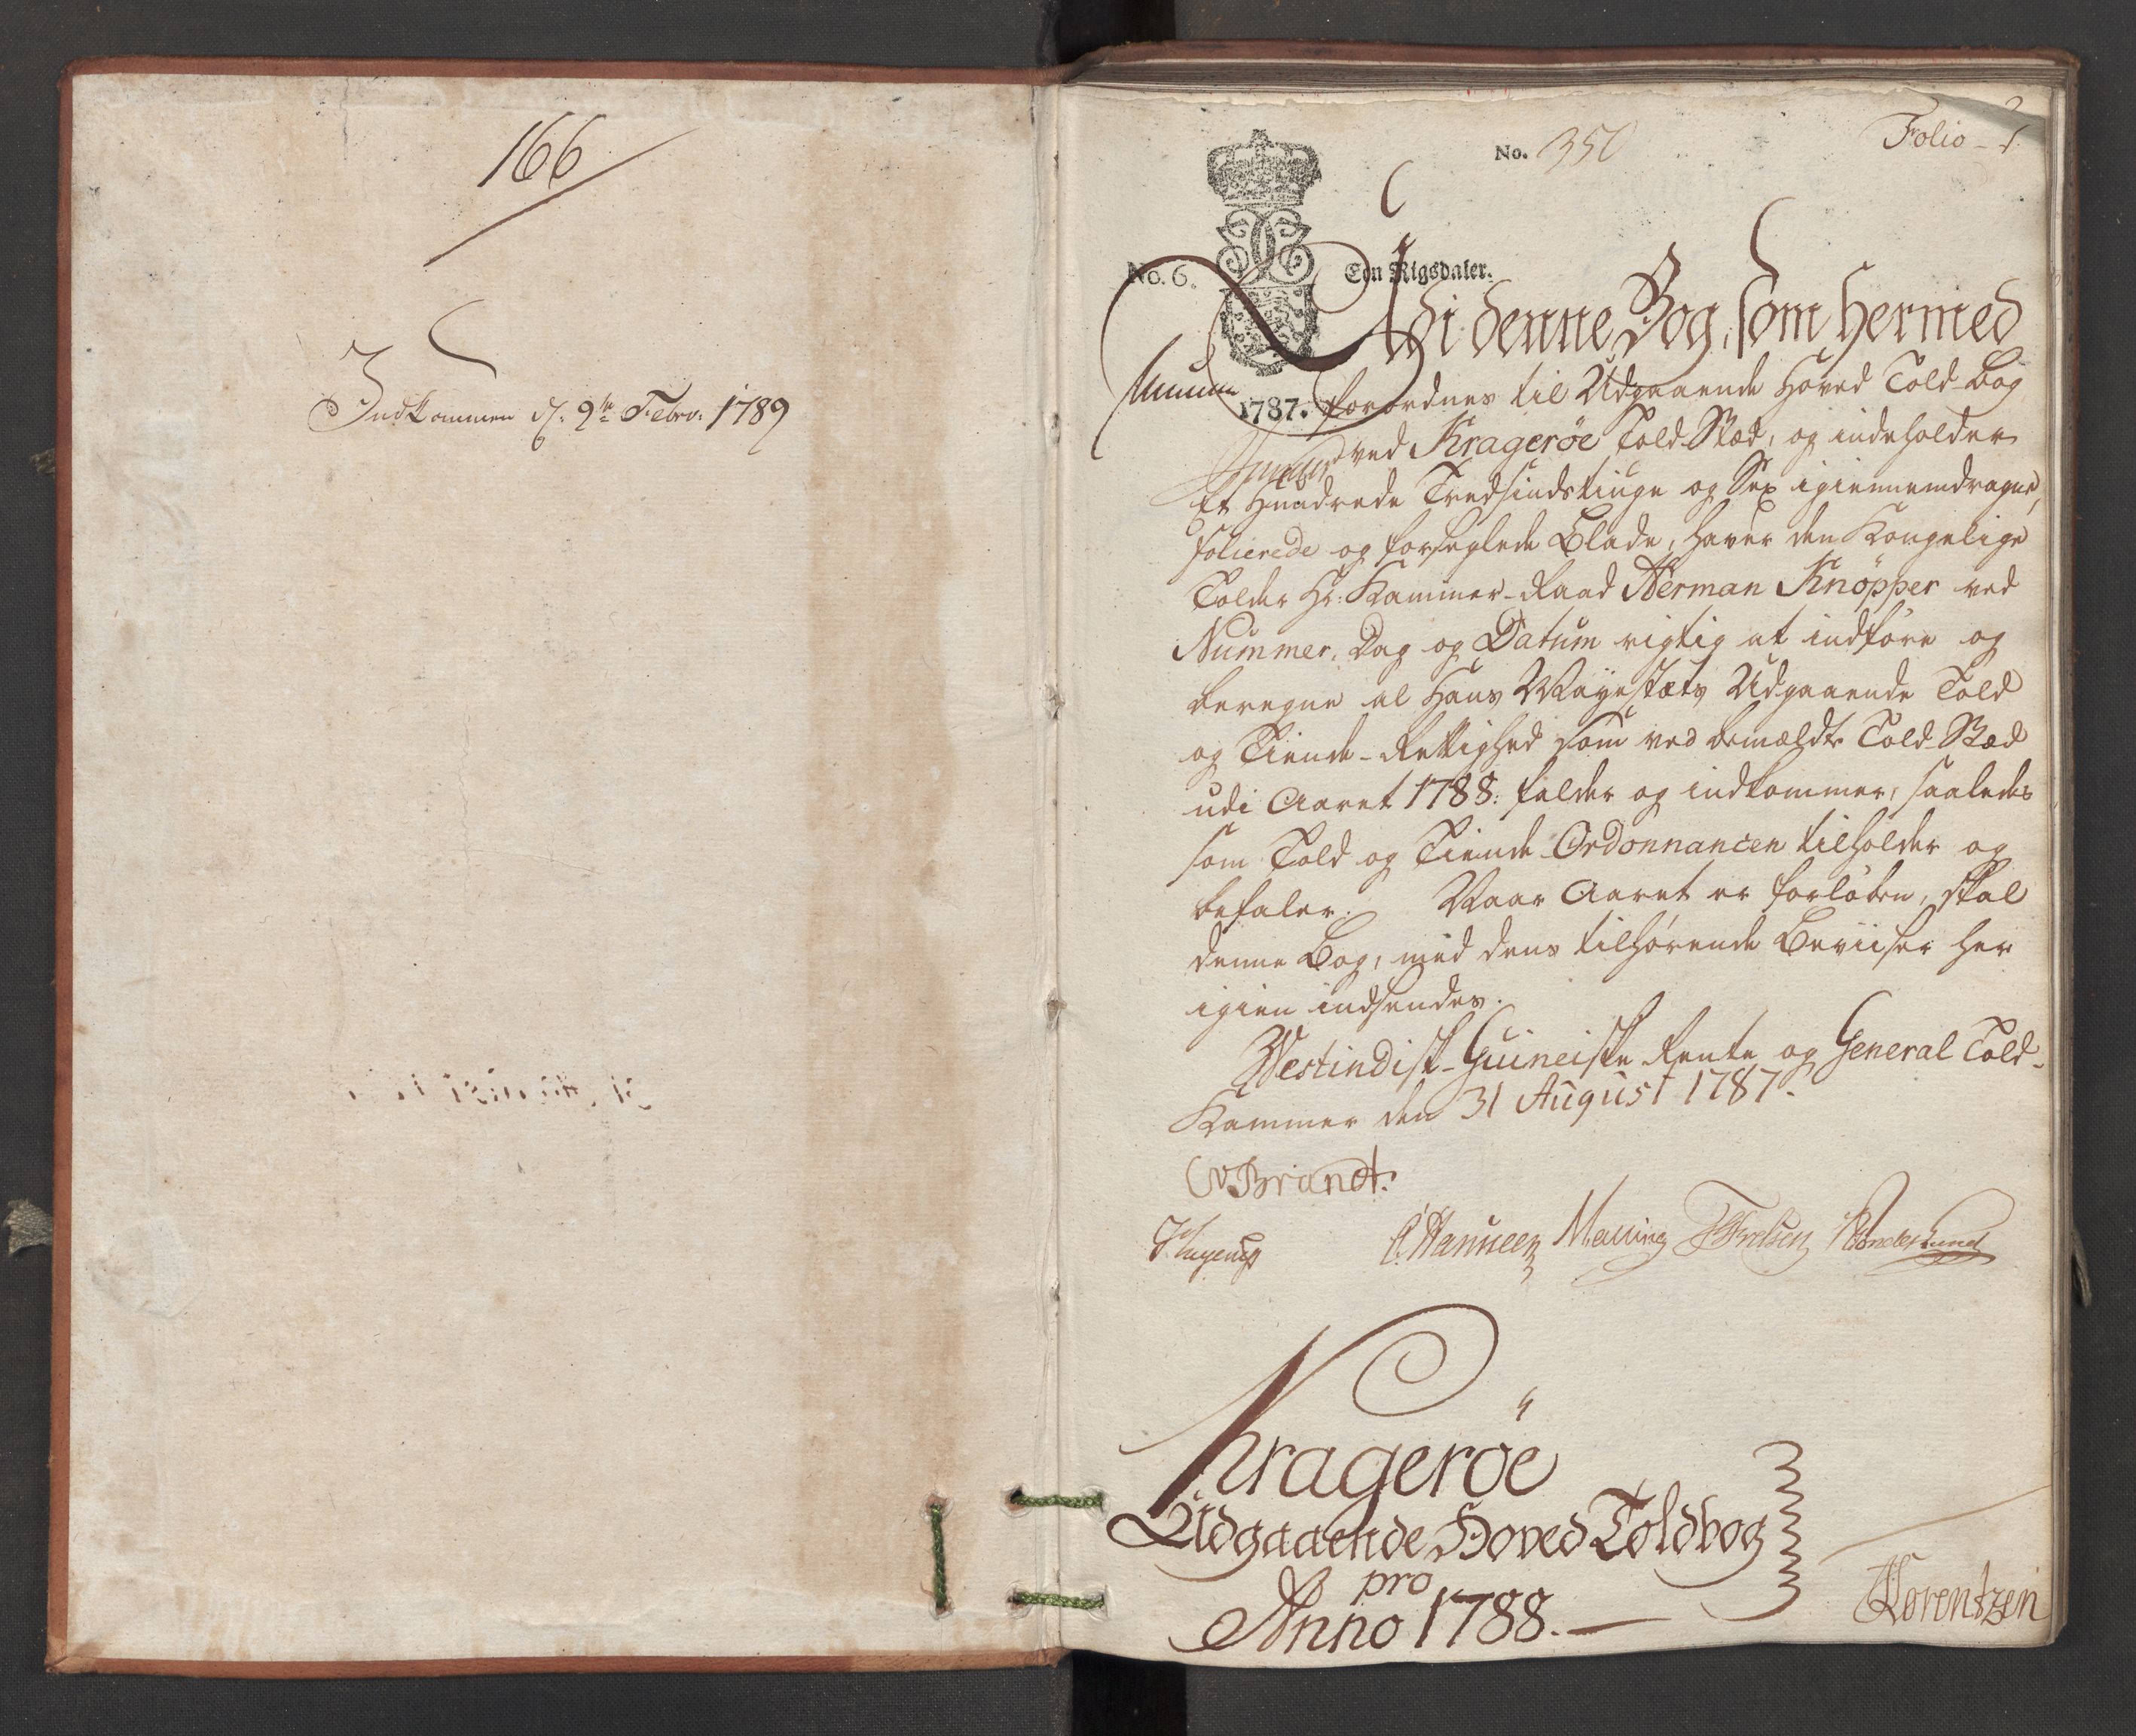 166
Indkommen d: 9de Febro: 1789
No. 350
Folio - 1
No. 6.
Een Rigsdaler.
1787.
Udi denne Bog, som hermed
forordnes til Udgaaende Hoved Told-Bog
ved Kragerøe Told-Stæd, og indeholder
Et Hundrede Tredsindstiuge og Sex igiennemdragne,
folierede og forseglede Blade, haver den Kongelige
Tolder Hr: Kammer-Raad Herman Knöpper ved
Nummer, Dag og Datum rigtig at indføre og
beregne al Hans Mayestæts Udgaaende Told
og Tiende-Rettighed som ved bemældte Told-Stæd
udi Aaret 1788: falder og indkommer, saaledes
som Told og Tiende Ordonnancen tilholder og
befaler. Naar Aaret er forløben, skal
denne Bog, med dens tilhørende Beviiser her
igien indsendes.
Westindisk-Guineiske Rente og General Told-
Kammer den 31 August 1787.
CvBrandt.
Kragerøe
Udgaaende Hoved Toldbog
pro
Anno 1788.
Lorentzen